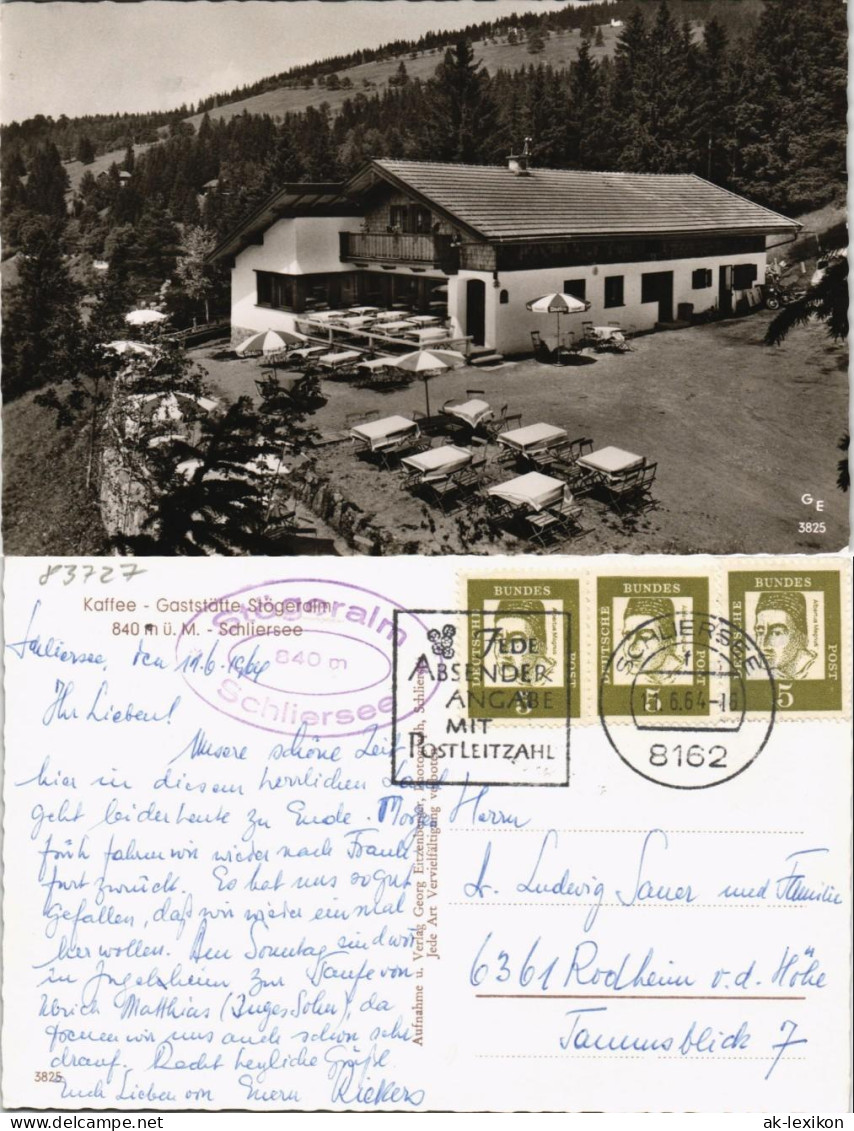 G E
3825
83727
Kaffee - Gaststätte Stögeralm
840 m ü. M. - Schliersee
Stögeralm
840 m
Schliersee
JEDE
ABSENDER
ANGABE
MIT
POSTLEITZAHL
DEUTSCHE BUNDESPOST
5
Albertus Magnus
DEUTSCHE BUNDESPOST
5
DEUTSCHE BUNDESPOST
5
Albertus Magnus
SCHLIERSEE
f
11.6.64-16
8162
Schliersee, den 11.6.1964
Ihr Lieben!
Unsere schöne Zeit
hier in diesem herrlichen
geht leider heute zu Ende. Morgen
früh fahren wir wieder nach Frank
furt zurück. Es hat uns so gut
gefallen, daß wir wieder einmal
her wollen. Am Sonntag sind wir
in Jugelsheim zur Taufe von
Ulrich Matthias (Inges Sohn), da
freuen wir uns auch schon sehr
drauf. Recht herzliche Grüße
Euch Lieben von Euern
3825
Aufnahme u. Verlag Georg Eitzenberger, Schliersee
Jede Art Vervielfältigung verboten
Herrn
Dr. Ludwig Sauer und Familie
6361 Rodheim v.d. Höhe
Taunusblick 7
www.delcampe.net
ak-lexikon